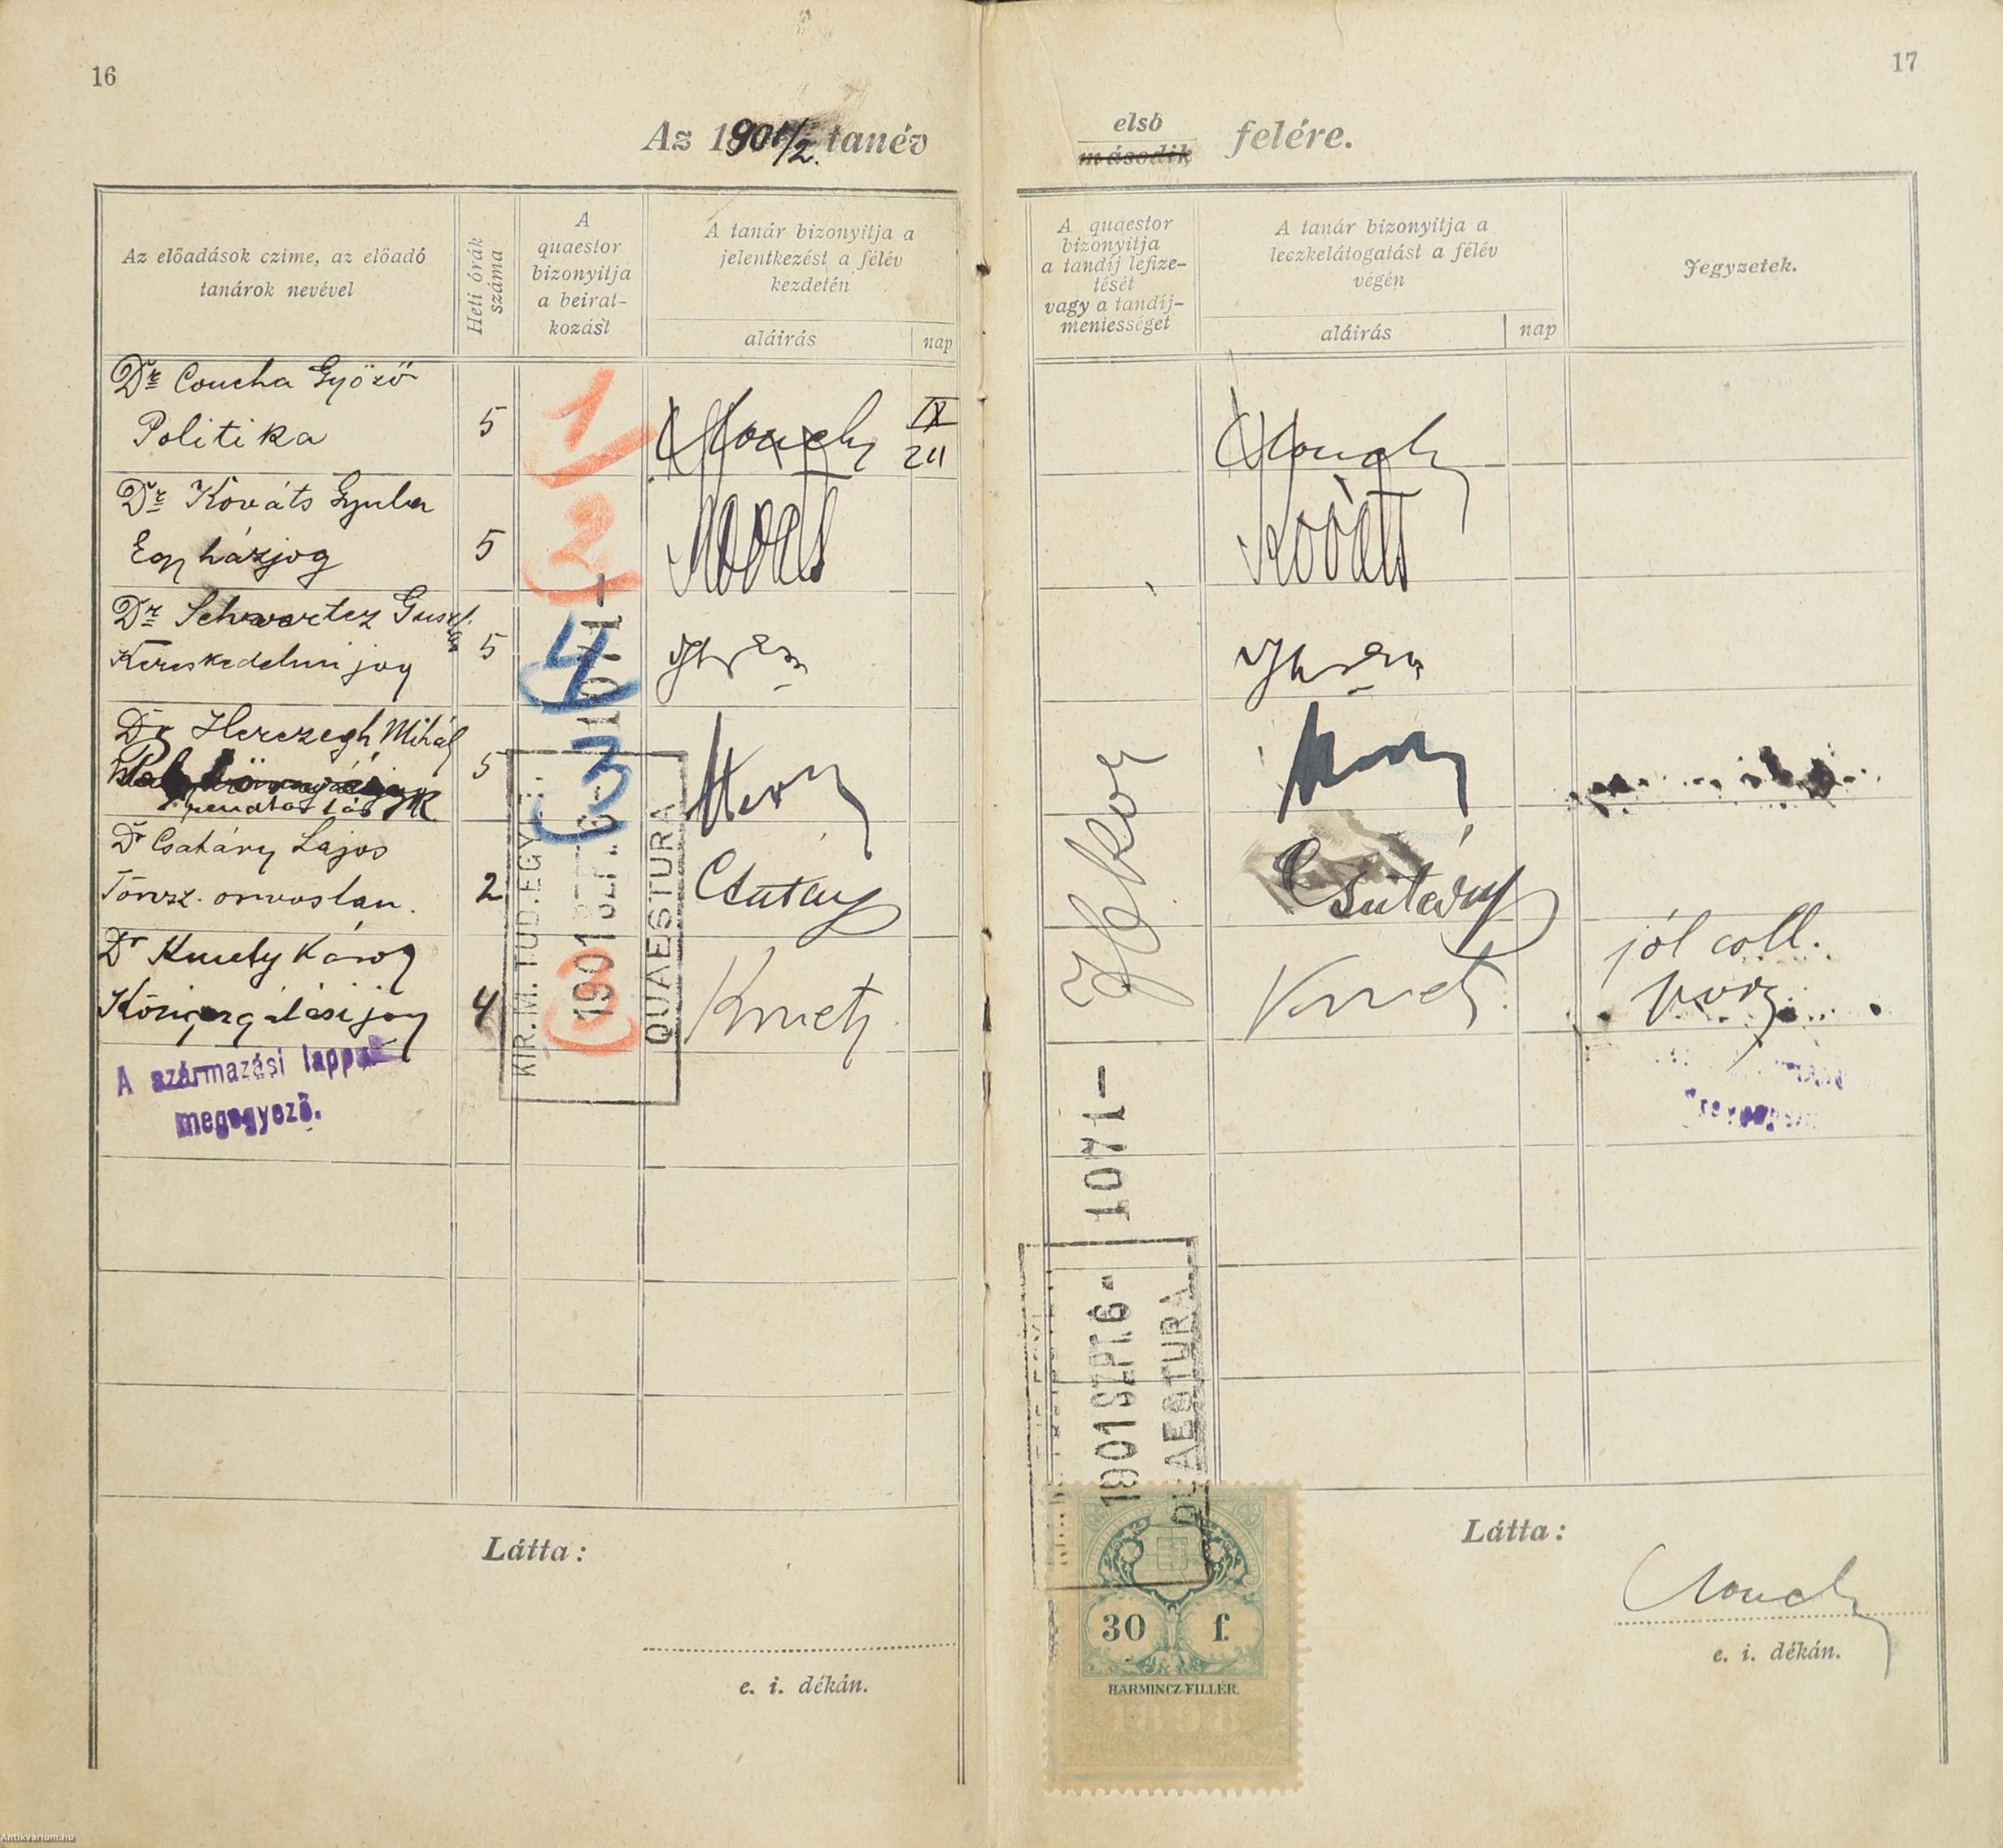 16
Az 1901/2. tanév
Az előadások czime, az előadó
tanárok nevével
Heti órák
száma
A
quaestor
bizonyitja
a beirat-
kozást
A tanár bizonyitja a
jelentkezést a félév
kezdetén
aláirás
nap
Dr Concha Győző
Politika
5
1
IX
Dr Kováts Gyula
Egyházjog
5
2
Kováts
Dr Schwartz Gusztáv
Kereskedelmi jog
5
4
Dr Herczegh Mihály
rendtartás
5
3
Herczegh
Dr Csatáry Lajos
Törvsz. orvostan.
2
Csatáry
Dr Kmety Károly
Közigazgatási jog
4
Kmety
KIR. M. TUD. EGY
1901 SZPT. 6-
1071-
QUAESTURA
A származási lappal
megegyező.
Látta:
e. i. dékán.
17
első
második
felére.
A quaestor
bizonyitja
a tandíj lefize-
tését
vagy a tandíj-
mentességet
A tanár bizonyitja a
leczkelátogatást a félév
végén
aláirás
nap
Jegyzetek.
Concha
Kováts
Csatáry
Kmety
jól coll.
1071-
1901 SZPT. 6-
QUAESTURA
30 f.
HARMINCZ FILLÉR.
1898
Látta:
Concha
e. i. dékán.
Antikvarium.hu